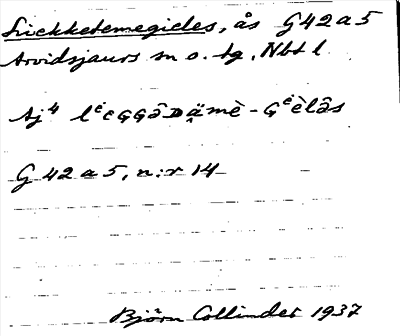 Liekketemegieles, ås G42a5
Arvidsjaurs sn o. tg, Nbt l
Aj⁴ lᵉ̀cGGôDa̤mè-Gᵉ̀èlâs
G 42 a 5, n:r 14
Björn Collinder 1937